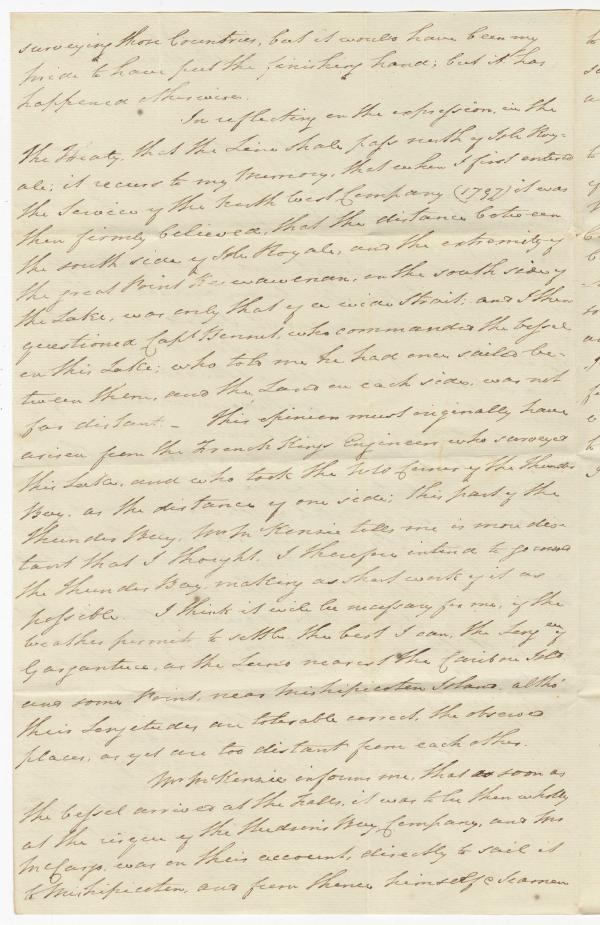 surveying those Countries, but it would have been my
pride to have put the finishing hand; but it has
happened otherwise.
In reflecting on the expression, in the
the Treaty, that the Line shall pass north of Isle Roy-
ale; it recurs to my Memory, that when I first entered
the Service of the North West Company (1797) it was
then firmly believed, that the distance between
the south side of Isle Royale, and the extremity of
the great Point Keewawenan, on the south side of
the Lake, was only that of a wide Strait; and I then
questioned Capt Bennet, who commanded the Vessel
on this Lake; who told me he had once sailed be-
tween them, and the Land on each side, was not
far distant. – This opinion must originally have
arisen from the French Kings Engineers who surveyed
this Lake, and who took the two Corners of the Thunder
Bay, as the distance of one side; this part of the
Thunder Bay, Mr McKenzie tells me is more dis-
tant that I thought. I therefore intend to go round
the Thunder Bay, making as short work of it as
possible. I think it will be necessary for me, if the
weather permits to settle the best I can, the Longde of
Gargantua, as the Land nearest the Caribou Isld
and some Point, near Mishipicoten Island, altho'
their Longitudes are tolerable correct, the observed
places, as yet are too distant from each other.
Mr McKenzie informs me, that as soon as
the Vessel arrived at the Falls, it was to be then wholly
at the risque of the Hudsons Bay Company, and Mr
McCargo, was on their account, directly to sail it
to Mishipicoten, and from thence himself & Seamen